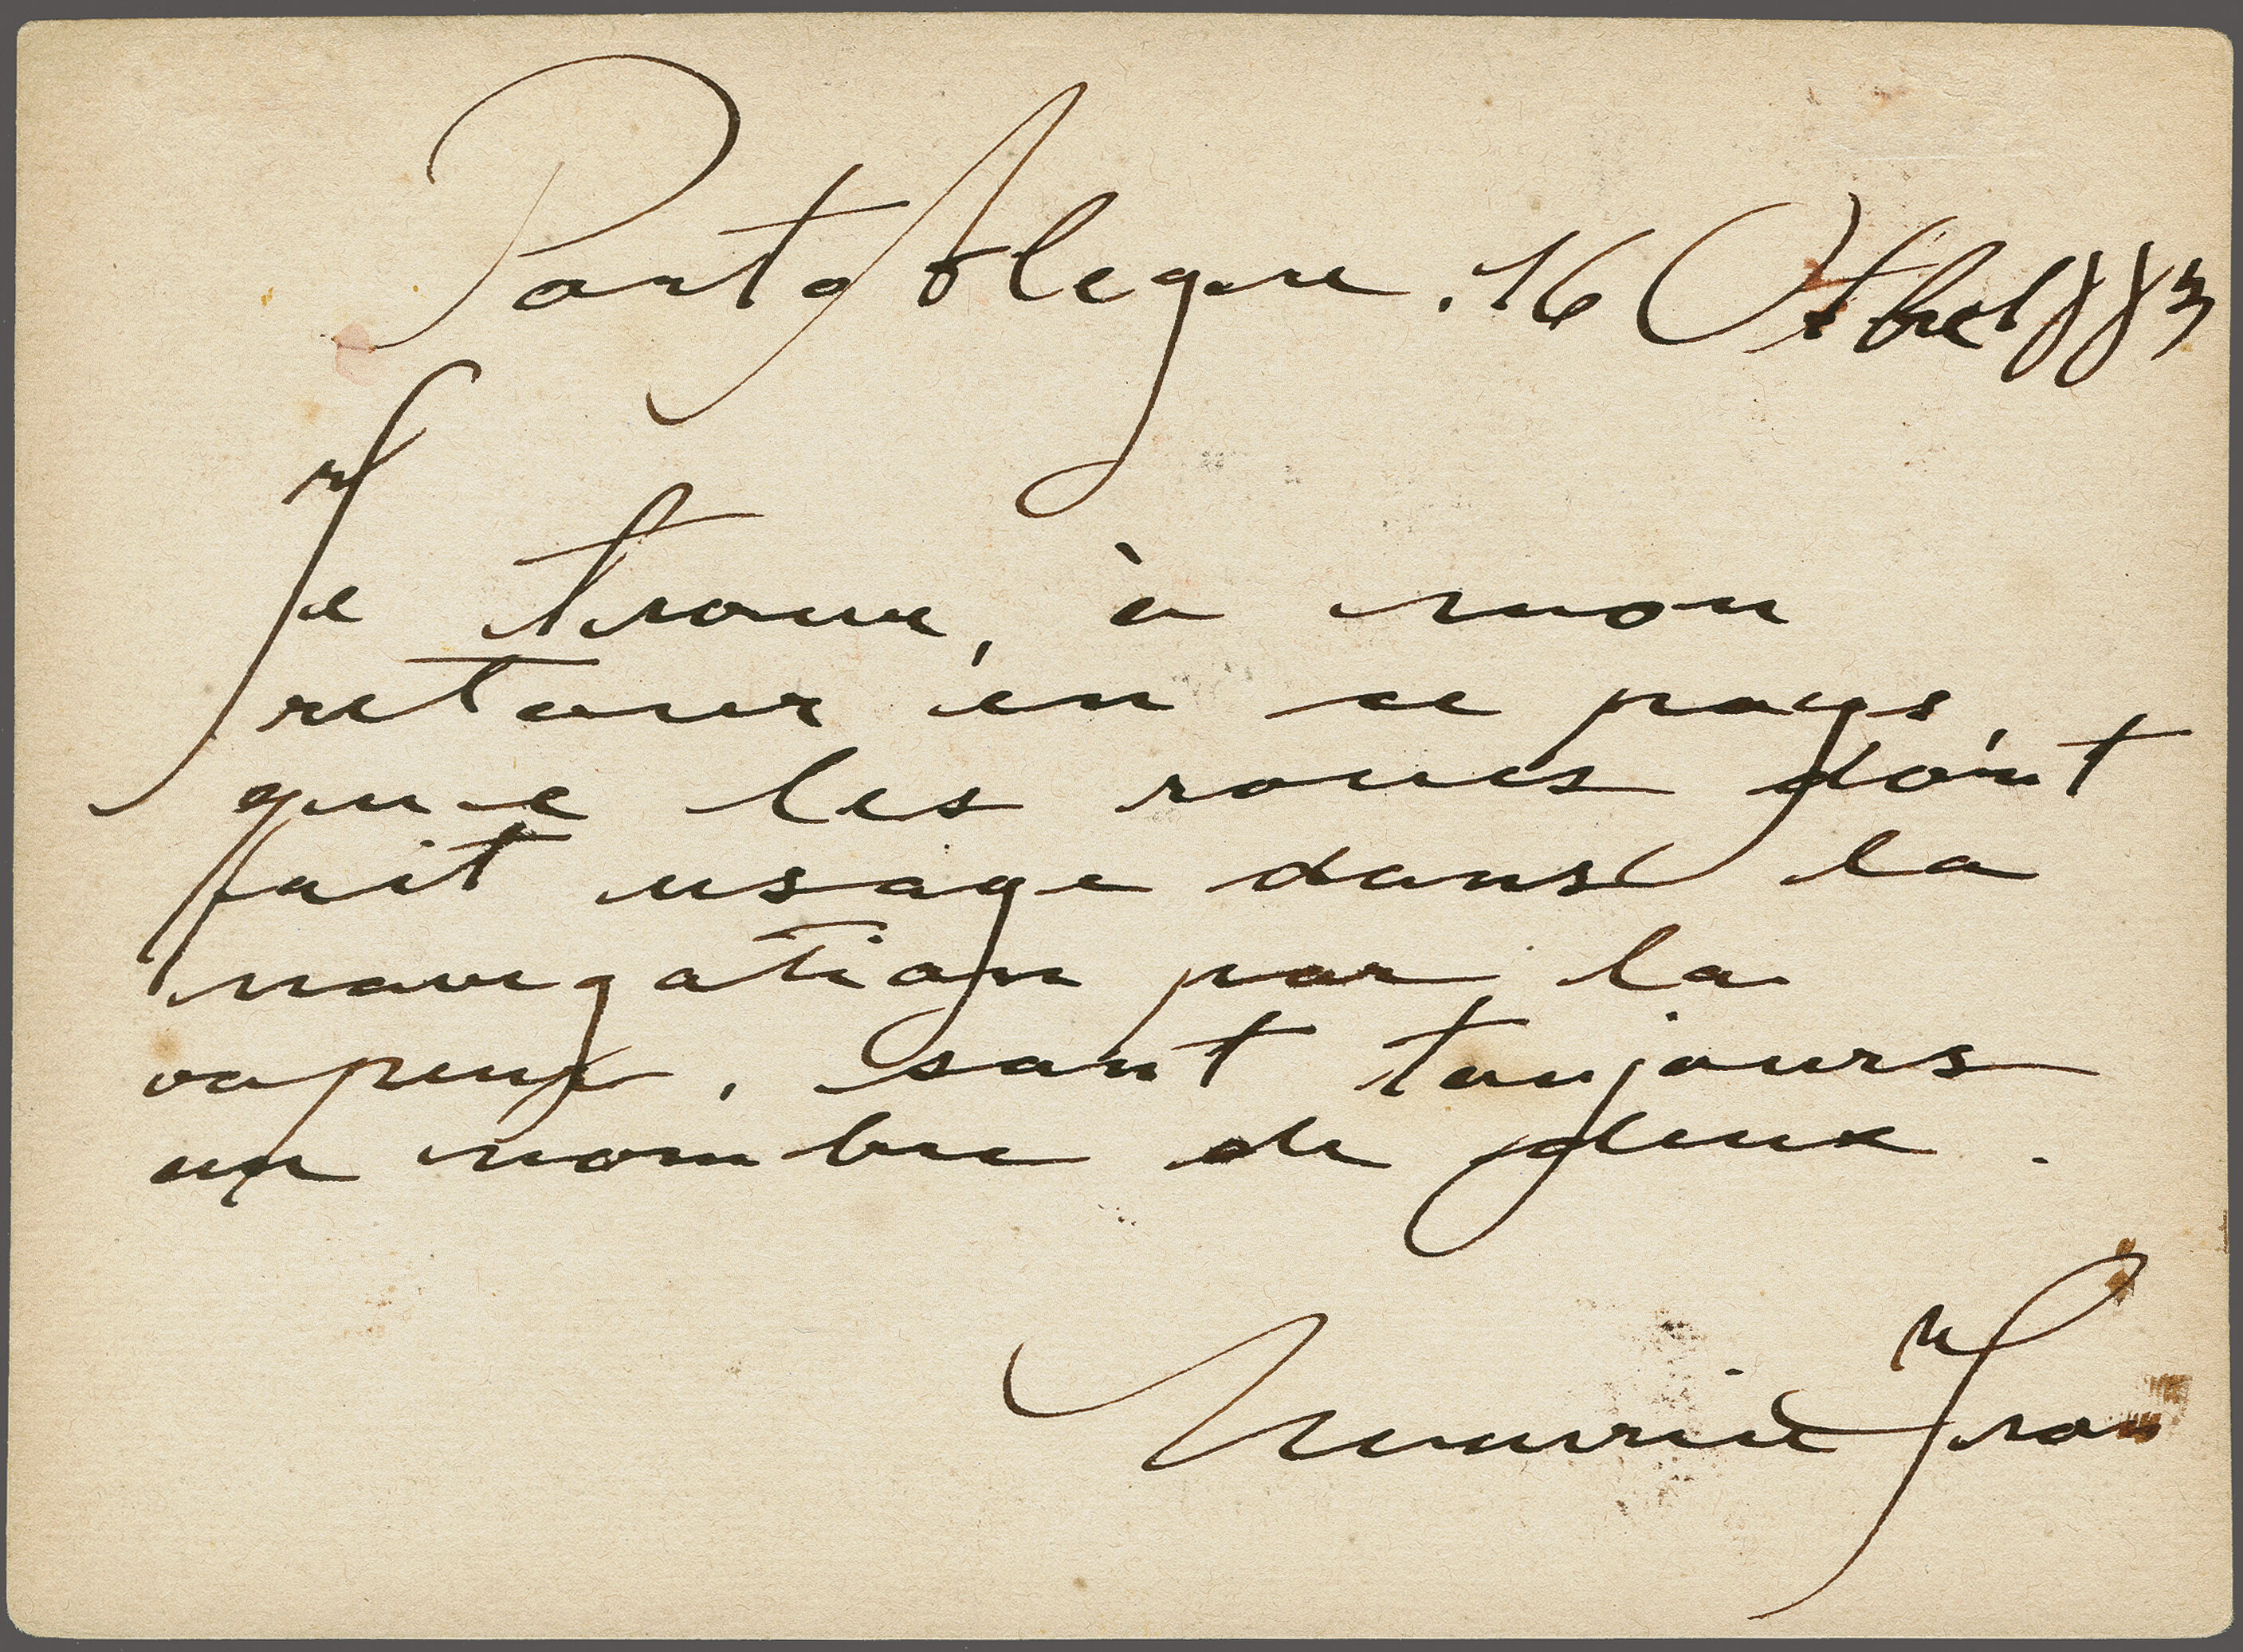 Porto Alegre. 16 Otbre 1883
Je trouve, à mon
retour en ce pays,
que les roues dont
fait usage dans la
navigation par la
vapeur, sont toujours
un nombre de deux.